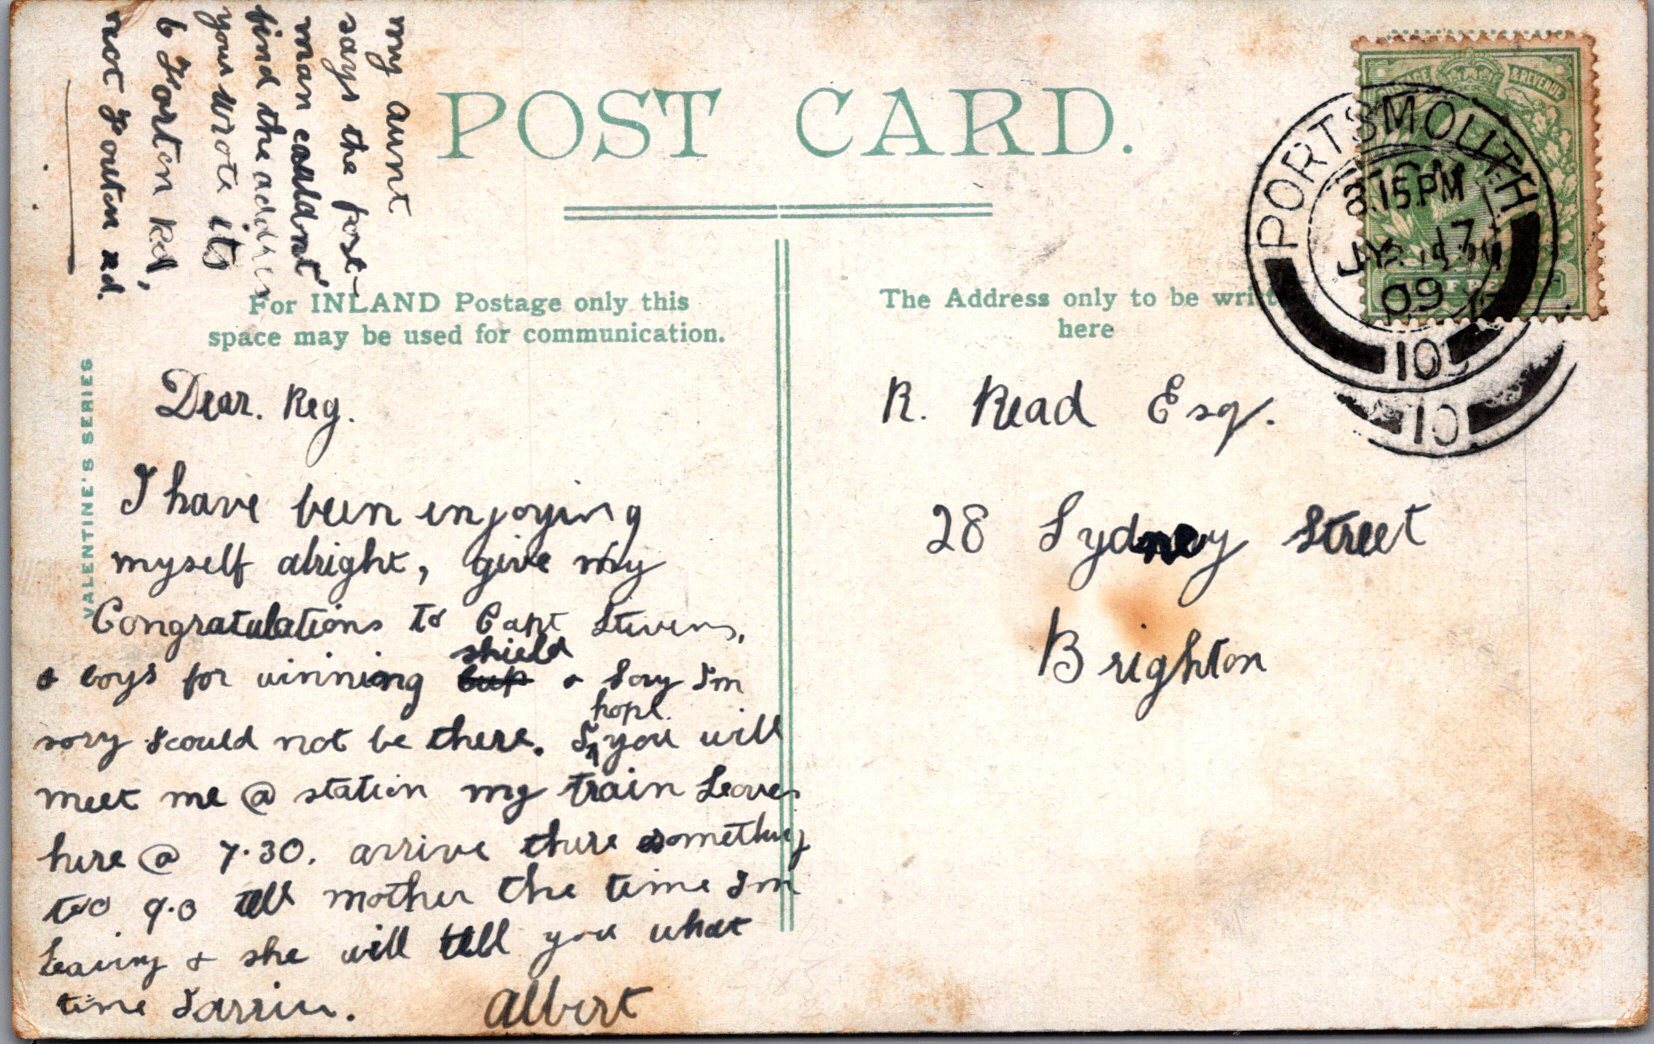 my aunt
says the post-
man couldnt
find the address
you wrote its
6 Forton Rd,
not Fouton rd.
POST CARD.
For INLAND Postage only this
space may be used for communication.
The Address only to be writt
here
VALENTINE'S SERIES
PORTSMOUTH
8.15 PM
JY 17
09
10
10
Dear. Reg.
I have been enjoying
myself alright, give my
Congratulations to Capt Stevens,
& boys for winning cup shield & Sory Im
sory I could not be there. I hope you will
meet me @ station my train Leaves
here @ 7.30. arrive there something
to 9.0 tell mother the time Im
Leaving & she will tell you what
time I arrive.
Albert
R. Read Esq.
28 Sydney Street
Brighton